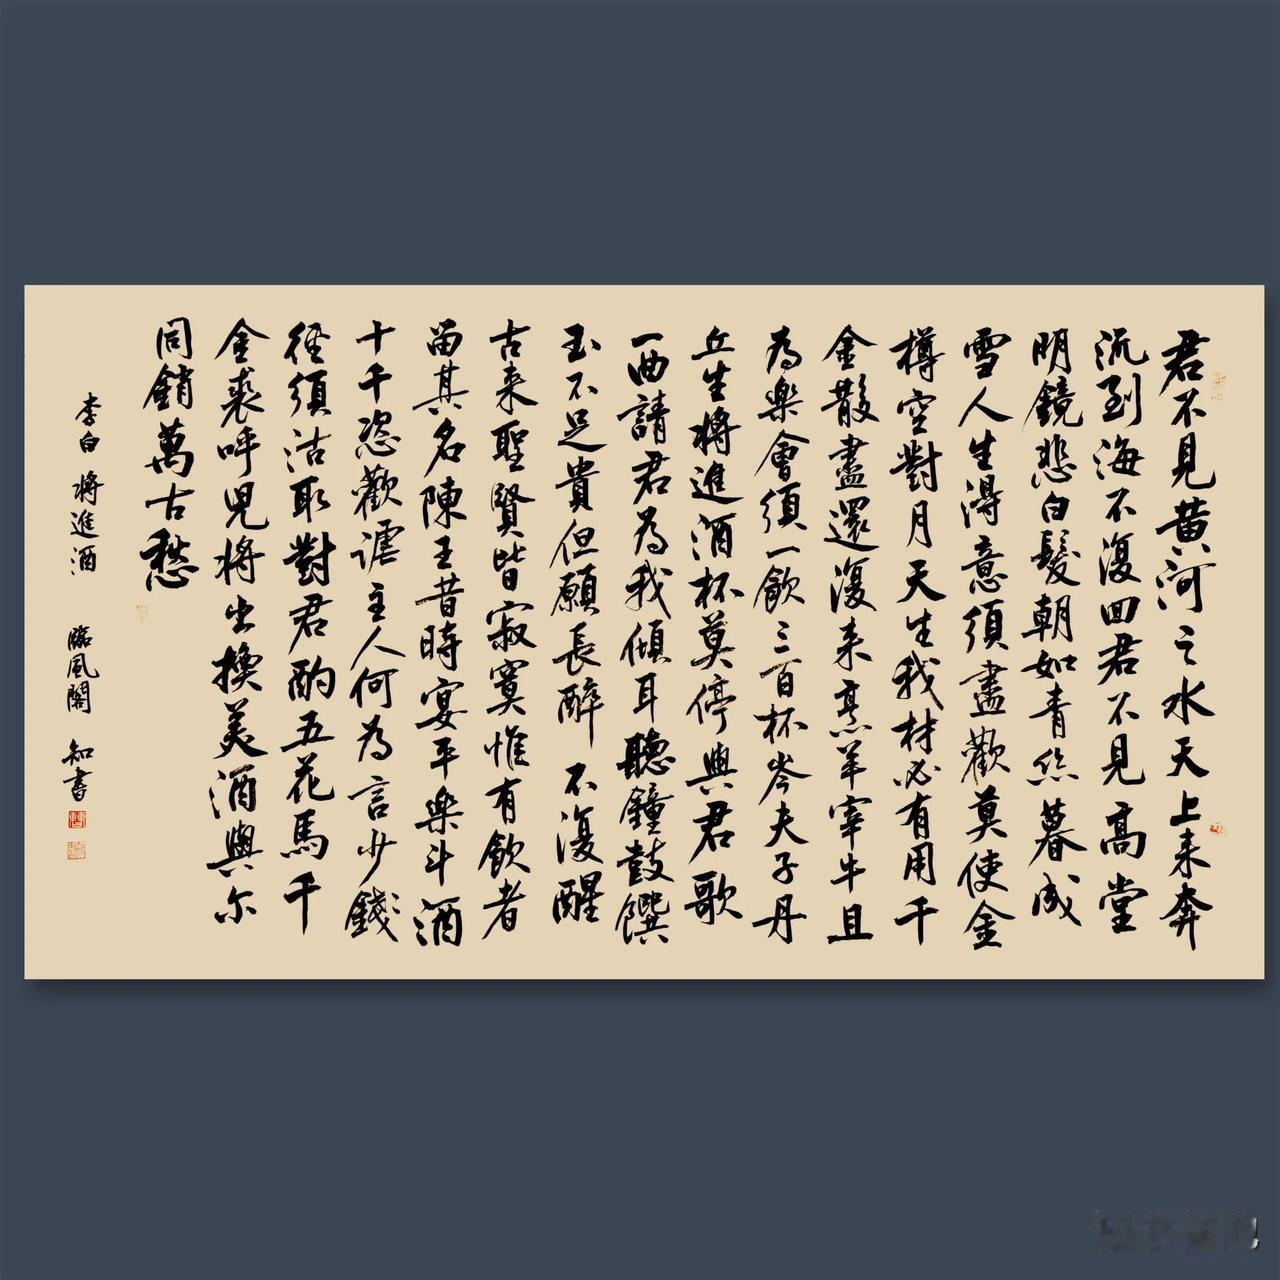 君不見黄河之水天上来奔
流到海不復回君不見高堂
明鏡悲白髮朝如青絲暮成
雪人生得意須盡歡莫使金
樽空對月天生我材必有用千
金散盡還復来烹羊宰牛且
為樂會須一飲三百杯岑夫子丹
丘生將進酒杯莫停與君歌
一曲請君為我傾耳聽鐘鼓饌
玉不足貴但願長醉不復醒
古来聖賢皆寂寞惟有飲者
留其名陳王昔時宴平樂斗酒
十千恣歡謔主人何為言少錢
徑須沽取對君酌五花馬千
金裘呼兒將出換美酒與尔
同銷萬古愁
李白 將進酒 臨風閣 知書